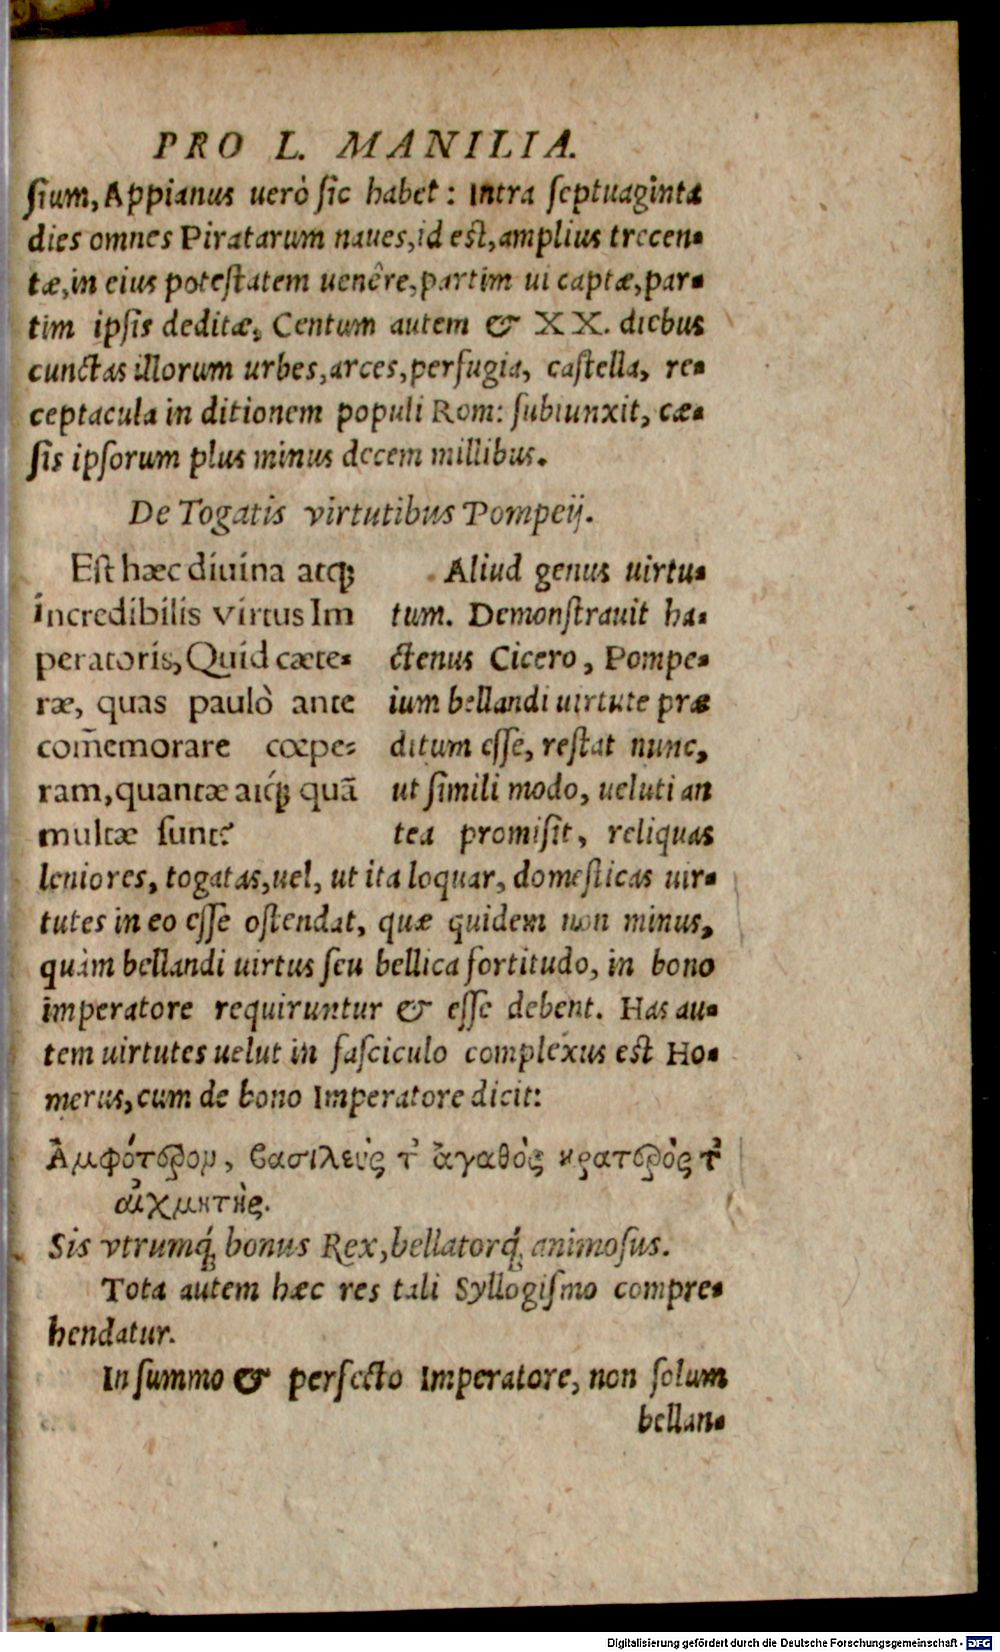 PRO L. MANILIA.
sium, Appianus uerò sic habet: Intra septuaginta
dies omnes Piratarum naues, id est, amplius trecen-
tæ, in eius potestatem uenêre, partim ui captæ, par-
tim ipsis deditæ, Centum autem & XX. diebus
cunctas illorum urbes, arces, perfugia, castella, re-
ceptacula in ditionem populi Rom: subiunxit, cæ-
sis ipsorum plus minus decem millibus.
De Togatis virtutibus Pompeij.
Est hæc diuina atq;
incredibilis virtus Im
peratoris, Quid cæte-
ræ, quas paulò ante
com̃emorare cœpe-
ram, quantæ atq́; quã
multæ sunt?
Aliud genus uirtu-
tum. Demonstrauit ha-
ctenus Cicero, Pompe-
ium bellandi uirtute præ
ditum esse, restat nunc,
ut simili modo, ueluti an
tea promisit, reliquas
leniores, togatas, uel, ut ita loquar, domesticas uir-
tutes in eo esse ostendat, quæ quidem non minus,
quàm bellandi uirtus seu bellica fortitudo, in bono
imperatore requiruntur & esse debent. Has au-
tem uirtutes uelut in fasciculo complexus est Ho-
merus, cum de bono Imperatore dicit:
Ἀμφότερον, βασιλεὺς τ᾽ ἀγαθὸς κρατερὸς τ᾽
αἰχμητὴς.
Sis vtrumq́; bonus Rex, bellatorq́; animosus.
Tota autem hæc res tali Syllogismo compre-
hendatur.
In summo & perfecto Imperatore, non solum
bellan-
Digitalisierung gefördert durch die Deutsche Forschungsgemeinschaft - DFG